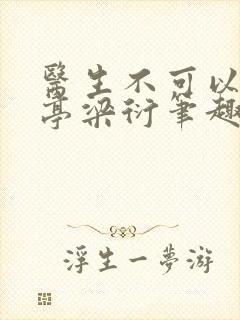 醫生不可以
亭梁衍筆趣
浮生一夢游